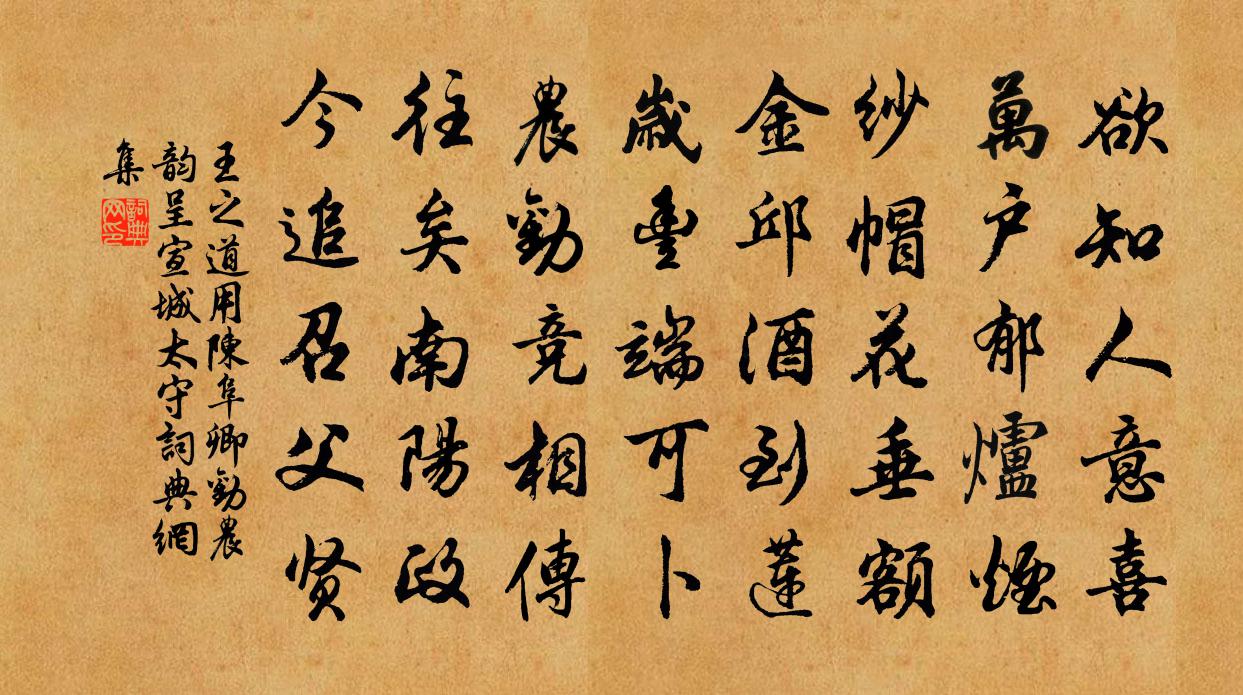 欲知人意喜
萬户郁爐煙
紗帽花垂額
金邱酒到蓮
歲豊端可卜
農勸竞相傳
往矣南陽政
今追召父贤
王之道用陳阜卿勸農
韵呈宣城太守詞典網
集
詞典网印